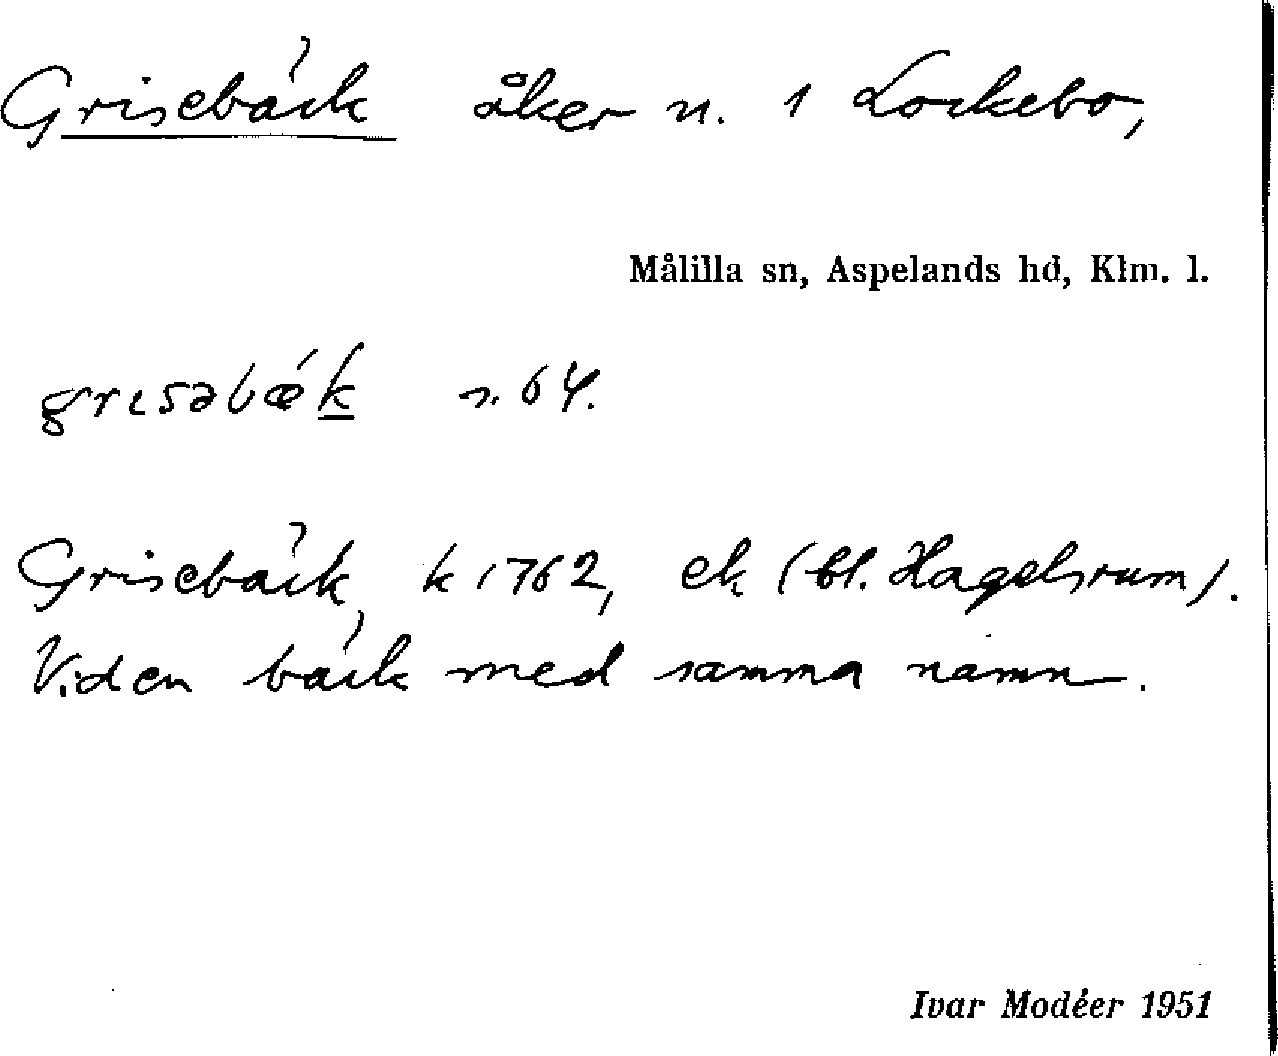 Grisebäck åker n. 1 Lockebo,
Målilla sn, Aspelands hd, Klm. l.
grisəbǽk n. 64.
Grisebäck, k 1762, ek (bl. Hagelsrum).
Vid en bäck med samma namn.
Ivar Modéer 1951